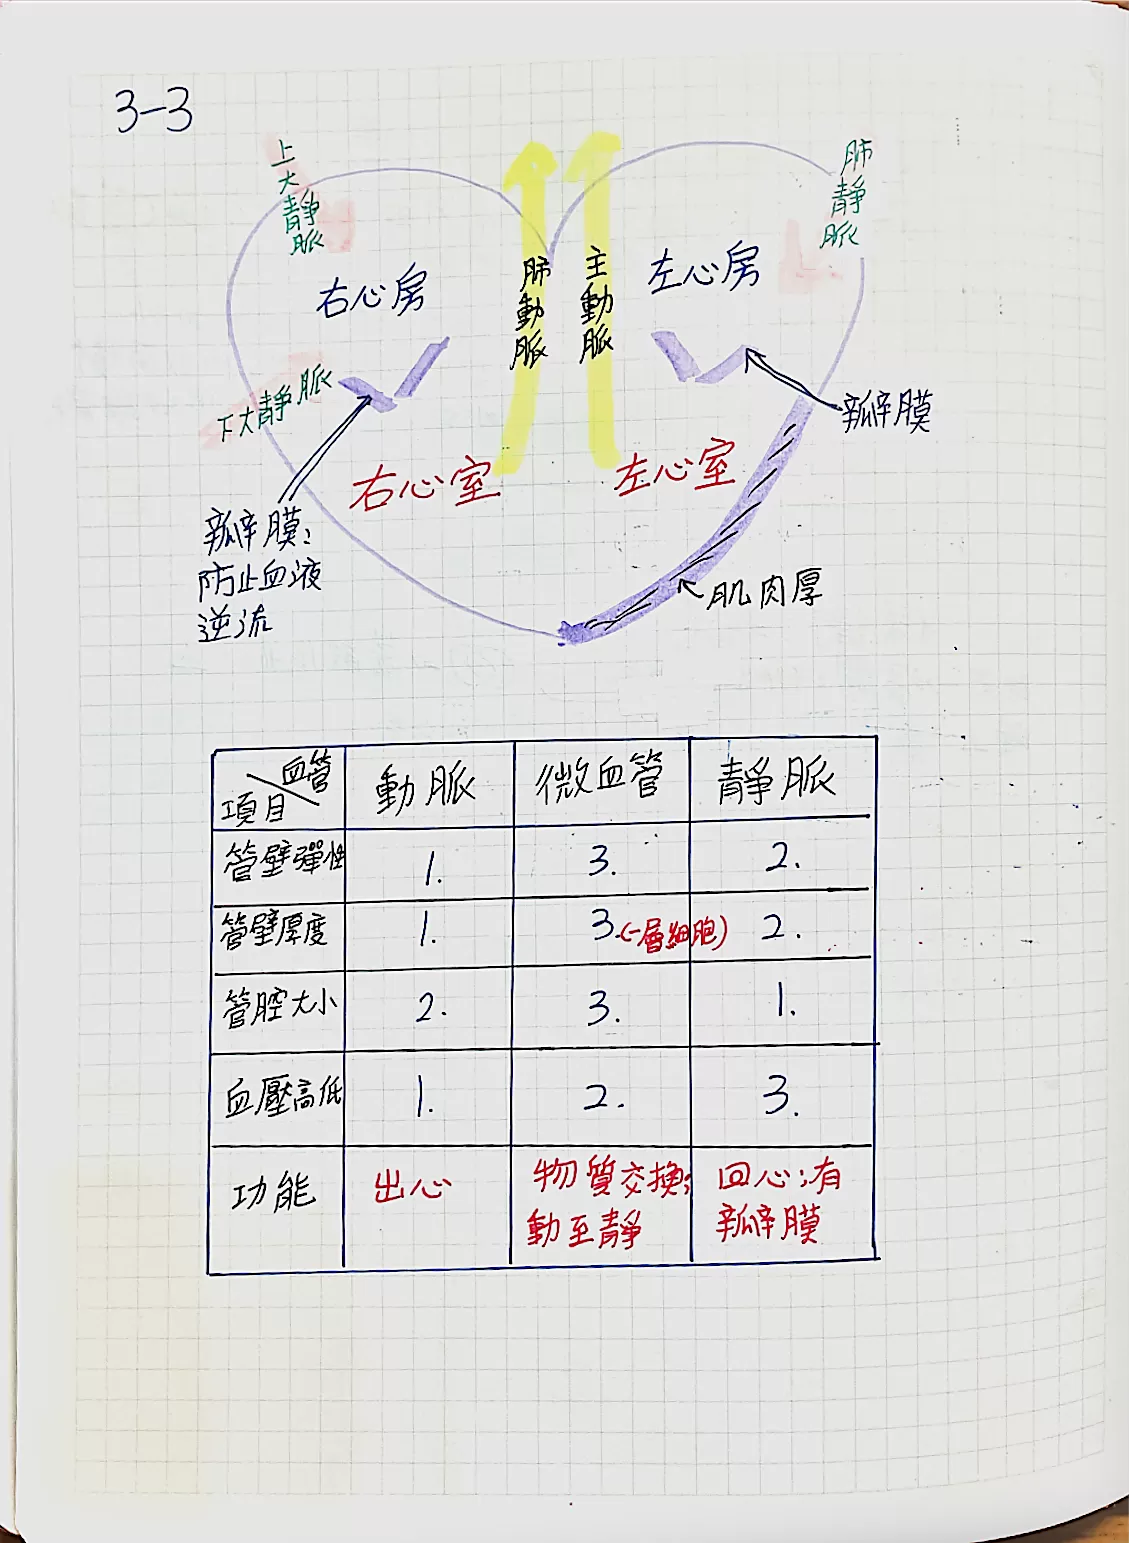 3-3
上大靜脈
肺靜脈
右心房
肺動脈
主動脈
左心房
下大靜脈
瓣膜
右心室
左心室
瓣膜:
防止血液
逆流
肌肉厚
血管
項目
動脈
微血管
靜脈
管壁彈性
1.
3.
2.
管壁厚度
1.
3.(一層細胞)
2.
管腔大小
2.
3.
1.
血壓高低
1.
2.
3.
功能
出心
物質交換;
動至靜
回心;有
瓣膜